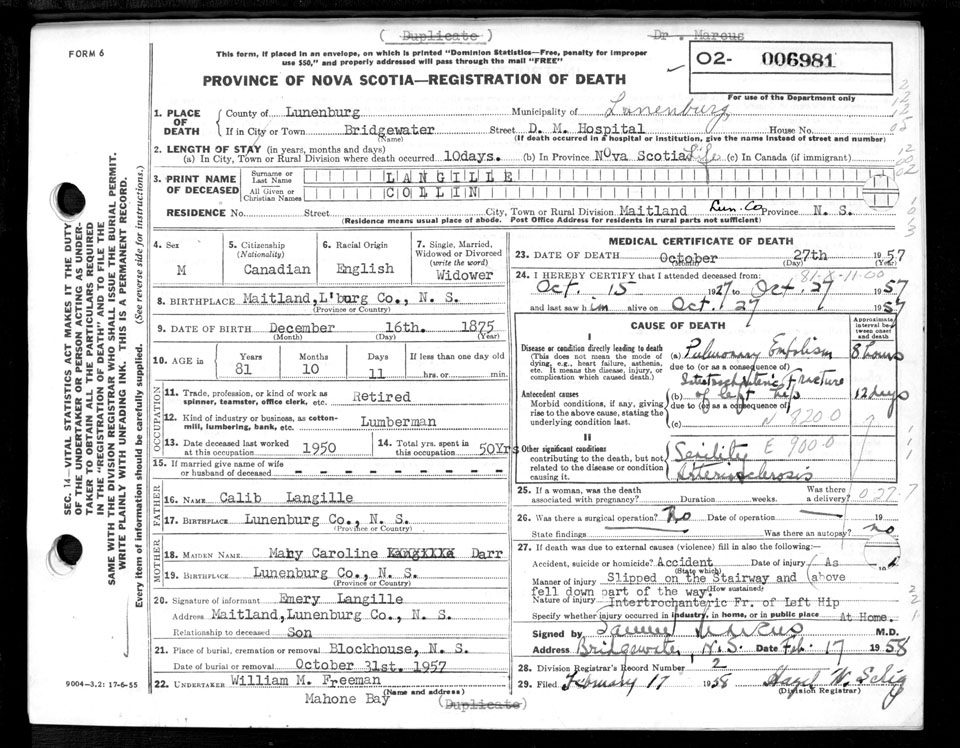 ( Duplicate )
Dr . Marcus
FORM 6
This form, if placed in an envelope, on which is printed "Dominion Statistics—Free, penalty for improper
use $50," and properly addressed will pass through the mail "FREE"
PROVINCE OF NOVA SCOTIA—REGISTRATION OF DEATH
02- 006981
For use of the Department only
1. PLACE OF DEATH
County of Lunenburg Municipality of Lunenburg
If in City or Town Bridgewater Street D. M. Hospital House No.
(Name) (If death occurred in a hospital or institution, give the name instead of street and number)
2. LENGTH OF STAY (in years, months and days)
(a) In City, Town or Rural Division where death occurred 10days. (b) In Province Nova Scotia Life (c) In Canada (if immigrant)
3. PRINT NAME OF DECEASED
Surname or Last Name LANGILLE
All Given or Christian Names COLLIN
RESIDENCE No. Street City, Town or Rural Division Maitland Lun. Co Province N. S.
(Residence means usual place of abode. Post Office Address for residents in rural parts not sufficient)
4. Sex M
5. Citizenship (Nationality) Canadian
6. Racial Origin English
7. Single, Married, Widowed or Divorced (write the word) Widower
8. BIRTHPLACE Maitland,L'burg Co., N. S.
(Province or Country)
9. DATE OF BIRTH December 16th. 1875
(Month) (Day) (Year)
10. AGE IN Years 81 Months 10 Days 11 If less than one day old hrs. or min.
OCCUPATION
11. Trade, profession, or kind of work as spinner, teamster, office clerk, etc. Retired
12. Kind of industry or business, as cotton-mill, lumbering, bank, etc. Lumberman
13. Date deceased last worked at this occupation 1950
14. Total yrs. spent in this occupation 50Yrs
15. If married give name of wife or husband of deceased - - - - - - - - -
FATHER
16. NAME Calib Langille
17. BIRTHPLACE Lunenburg Co., N. S.
(Province or Country)
MOTHER
18. MAIDEN NAME Mary Caroline Langille Darr
19. BIRTHPLACE Lunenburg Co., N. S.
(Province or Country)
20. Signature of informant Emery Langille
Address Maitland,Lunenburg Co., N. S.
Relationship to deceased Son
21. Place of burial, cremation or removal Blockhouse, N. S.
Date of burial or removal October 31st. 1957
22. UNDERTAKER William M. Freeman
(Name and address)
Mahone Bay
(Duplicate)
MEDICAL CERTIFICATE OF DEATH
23. DATE OF DEATH October 27th 1957
(Month) (Day)
81-8-11-00
24. I HEREBY CERTIFY that I attended deceased from:
Oct. 15 1927 to Oct. 27 1957
and last saw him alive on Oct. 27 1957
CAUSE OF DEATH
Approximate interval between onset and death
I
Disease or condition directly leading to death
(This does not mean the mode of dying, e.g., heart failure, asthenia, etc. It means the disease, injury, or complication which caused death.)
(a) Pulmonary Embolism 8 hours
due to (or as a consequence of)
Antecedent causes
Morbid conditions, if any, giving rise to the above cause, stating the underlying condition last.
(b) Intertrochanteric Fracture of left hip 12 days
due to (or as a consequence of)
(c) N 820 0
II
Other significant conditions
contributing to the death, but not related to the disease or condition causing it.
Senility E 900-0
Arteriosclerosis
25. If a woman, was the death associated with pregnancy? Duration weeks. Was there a delivery? 027-7
26. Was there a surgical operation? No Date of operation 19
State findings Was there an autopsy? no
27. If death was due to external causes (violence) fill in also the following:—
Accident, suicide or homicide? Accident Date of injury As 19
(State which)
Manner of injury Slipped on the Stairway and above
(How sustained)
fell down part of the way.
Nature of injury Intertrochanteric Fr. of Left Hip
Specify whether injury occurred in industry, in home, or in public place At Home.
Signed by Samuel Marcus M.D.
Address Bridgewater, N.S. Date Feb. 17 1958
28. Division Registrar's Record Number 2
29. Filed February 17 1958 Hazel W.
(Division Registrar)
SEC. 14—VITAL STATISTICS ACT MAKES IT THE DUTY
OF THE UNDERTAKER OR PERSON ACTING AS UNDER-
TAKER TO OBTAIN ALL THE PARTICULARS REQUIRED
IN THE "REGISTRATION OF DEATH" AND TO FILE THE
SAME WITH THE DIVISION REGISTRAR WHO SHALL ISSUE THE BURIAL PERMIT.
WRITE PLAINLY WITH UNFADING INK. THIS IS A PERMANENT RECORD.
Every item of information should be carefully supplied. (See reverse side for instructions.)
9004-3.2: 17-6-55